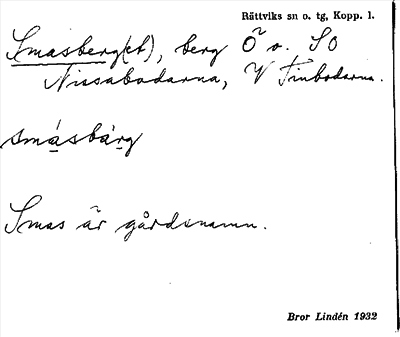 Rättviks sn o. tg, Kopp. l.
Smasberg(et), berg Ö o. SO
Nissabodarna, V Finbodarna.
smásbàrg
Smas är gårdsnamn.
Bror Lindén 1932